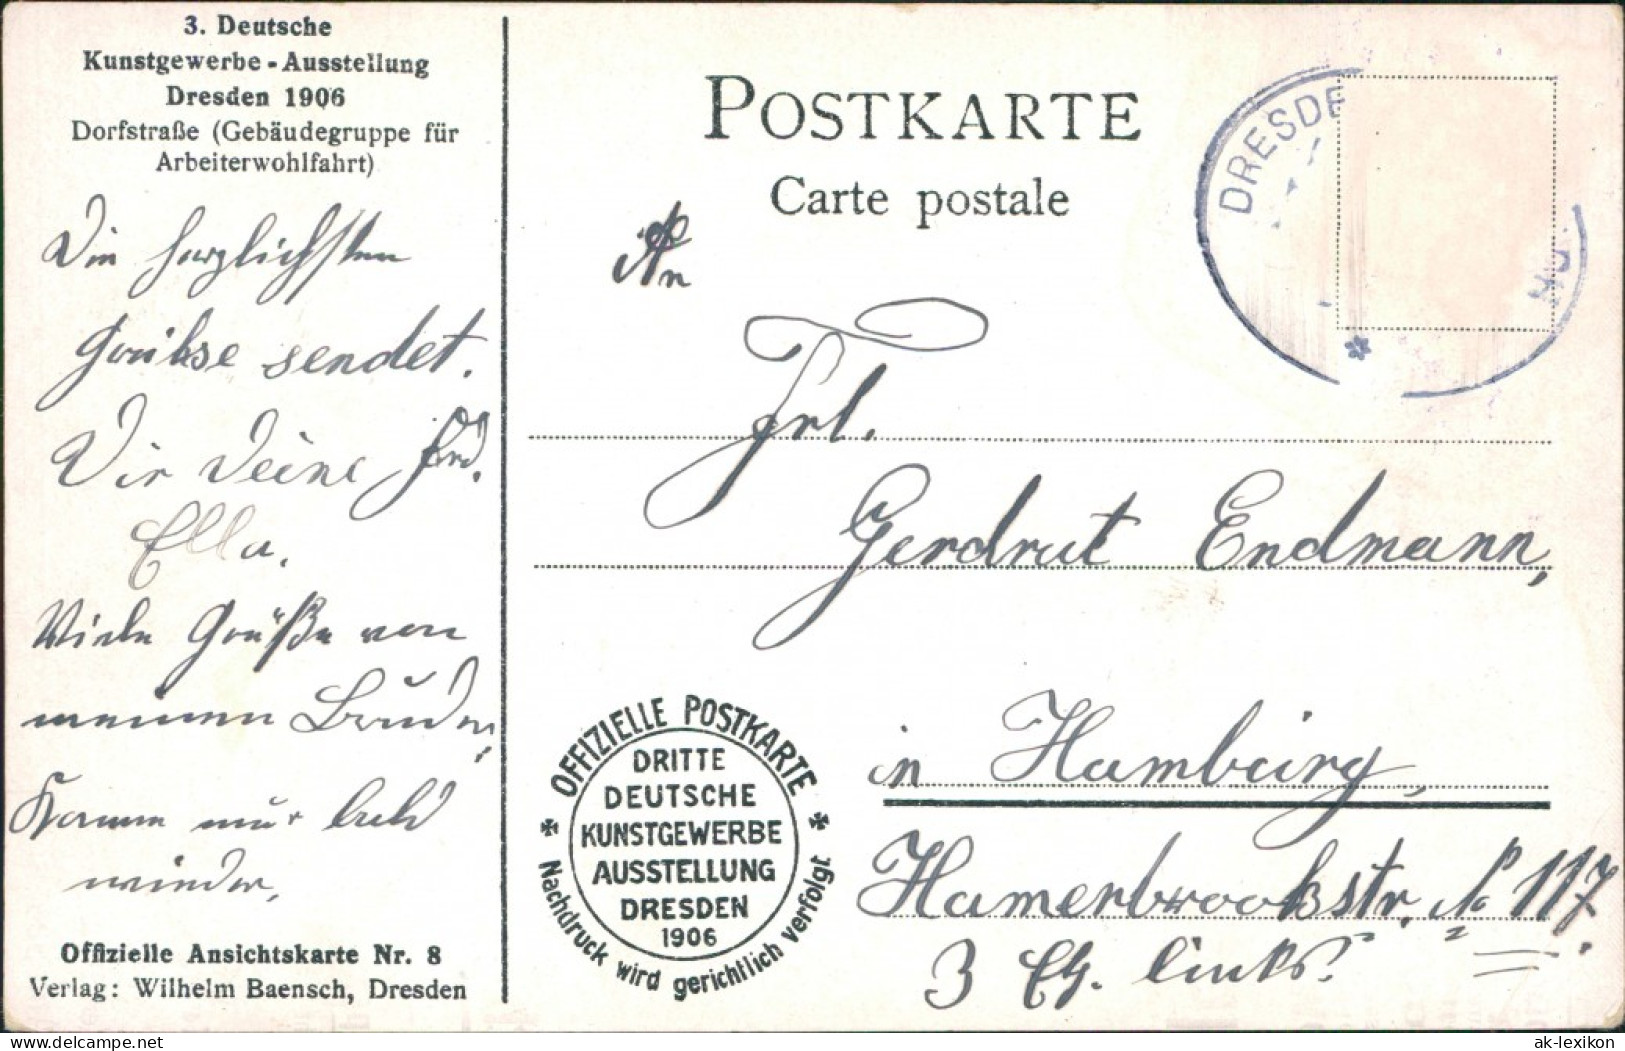 3. Deutsche
Kunstgewerbe-Ausstellung
Dresden 1906
Dorfstraße (Gebäudegruppe für
Arbeiterwohlfahrt)
Die herzlichsten
Grükse sendet.
Dir Deine Frd.
Ella.
Viele Grüße von
meinem Bruder,
Komme nur bald
wieder,
Offizielle Ansichtskarte Nr. 8
Verlag: Wilhelm Baensch, Dresden
POSTKARTE
Carte postale
DRESDE
An
Frl.
Gerdrut Endmann,
in Hamburg,
Hamerbrookstr. No 117.
3 Etg. links.
OFFIZIELLE POSTKARTE
DRITTE
DEUTSCHE
KUNSTGEWERBE
AUSSTELLUNG
DRESDEN
1906
Nachdruck wird gerichtlich verfolgt
hit-mynet
ak-lexikon